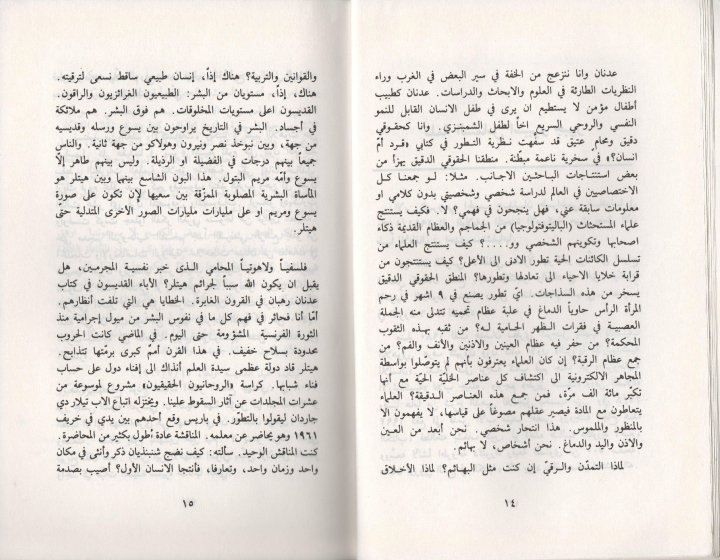 عدنان وانا ننزعج من الخفة في سير البعض في الغرب وراء
النظريات الطارئة في العلوم والابحاث والدراسات. عدنان كطبيب
أطفال مؤمن لا يستطيع ان يرى في طفل الانسان القابل للنمو
النفسي والروحي السريع اخاً لطفل الشمبنزي. وانا كحقوقي
دقيق ومحامٍ عتيق قد سفّهت نظرية التطور في كتابي «قرد أم
انسان؟» في سخرية ناعمة مبطّنة. منطقنا الحقوقي الدقيق يهزأ من
بعض استنتاجات الباحثين الاجانب. مثلا: لو جمعنا كل
الاختصاصيين في العالم لدراسة شخصي وشخصيتي بدون كلامي او
معلومات سابقة عني، فهل ينجحون في فهمي؟ لا. فكيف يستنتج
علماء المستحثات (الباليتونتولوجيا) من الجماجم والعظام القديمة ذكاء
اصحابها وتكوينهم الشخصي وو....؟ كيف يستنتج العلماء من
تسلسل الكائنات الحية تطور الادنى الى الأعلى؟ كيف يستنتجون من
قرابة خلايا الاحياء الى تعادلها وتطورها؟ المنطق الحقوقي الدقيق
يسخر من هذه السذاجات. ايّ تطور يصنع في ٩ اشهر في رحم
المرأة الرأس حاوياً الدماغ في علبة عظام تحميه تتدلى منه الجملة
العصبية في فقرات الظهر الحامية له؟ من ثقبه بهذه الثقوب
المحكمة؟ من حفر فيه عظام العينين والاذنين والأنف والفم؟ من
جمع عظام الرقبة؟ إن كان العلماء يعترفون بأنهم لم يتوصّلوا بواسطة
المجاهر الالكترونية الى اكتشاف كل عناصر الخليّة الحيّة مع أنها
تكبّر مائة الف مرّة، فمن جمع هذه العناصر الدقيقة؟ العلماء
يتعاطون مع المادة فيصير عقلهم مصوغاً على قياسها، لا يفهمون الا
بالمنظور والملموس. هذا انتحار شخصي. نحن أبعد من العين
والاذن واليد والدماغ. نحن أشخاص، لا بهائم.
لماذا التمدّن والرقيّ إن كنت مثل البهائم؟ لماذا الأخلاق
١٤
والقوانين والتربية؟ هناك إذاً، إنسان طبيعي ساقط نسعى لترقيته.
هناك، إذاً، مستويان من البشر: الطبيعيون الغرائزيون والراقون.
القديسون اعلى مستويات المخلوقات. هم فوق البشر. هم ملائكة
في أجساد. البشر في التاريخ يراوحون بين يسوع ورسله وقديسيه
من جهة، وبين نبوخذ نصر ونيرون وهولاكو من جهة ثانية. والناس
جميعاً بينهم درجات في الفضيلة او الرذيلة. وليس بينهم طاهر إلّا
يسوع وأمّه مريم البتول. هذا البون الشاسع بينها وبين هيتلر هو
المأساة البشرية المصلوبة الممزّقة بين سعيها لإن تكون على صورة
يسوع ومريم او على مليارات مليارات الصور الأخرى المتدلية حتّى
هيتلر.
فلسفياً ولاهوتياً المحامي الذى خبر نفسية المجرمين، هل
يقبل ان يكون الله سبباً لجرائم هيتلر؟ الآباء القديسون في كتاب
عدنان رهبان في القرون الغابرة. الخطايا هي التي تلفت أنظارهم.
أمّا أنا فحائر في فهم كل ما في نفوس البشر من ميول إجرامية منذ
الثورة الفرنسية المشؤومة حتى اليوم. في الماضي كانت الحروب
محدودة بسلاح خفيف. في هذا القرن أممٌ كبرى برمّتها تتذابح.
هيتلر قاد دولة عظمى سيدة العلم أنذاك الى إفناء دول على حساب
فناء شبابها. كراسة «الروحانيون الحقيقيون» مشروع لموسوعة من
عشرات المجلدات عن آثار السقوط علينا. ويختزله اتباع الاب تيلار دي
جاردان ليقولوا بالتطوّر. في باريس وقع أحدهم بين يدي في خريف
١٩٦١ وهو يحاضر عن معلمه. المناقشة عادة أطول بكثير من المحاضرة.
كنت المناقش الوحيد. سألته: كيف نضج شنبنذيان ذكر وأنثى في مكان
واحد وزمان واحد، وتعارفا، فأنتجا الانسان الأول؟ أصيب بصدمة
١٥